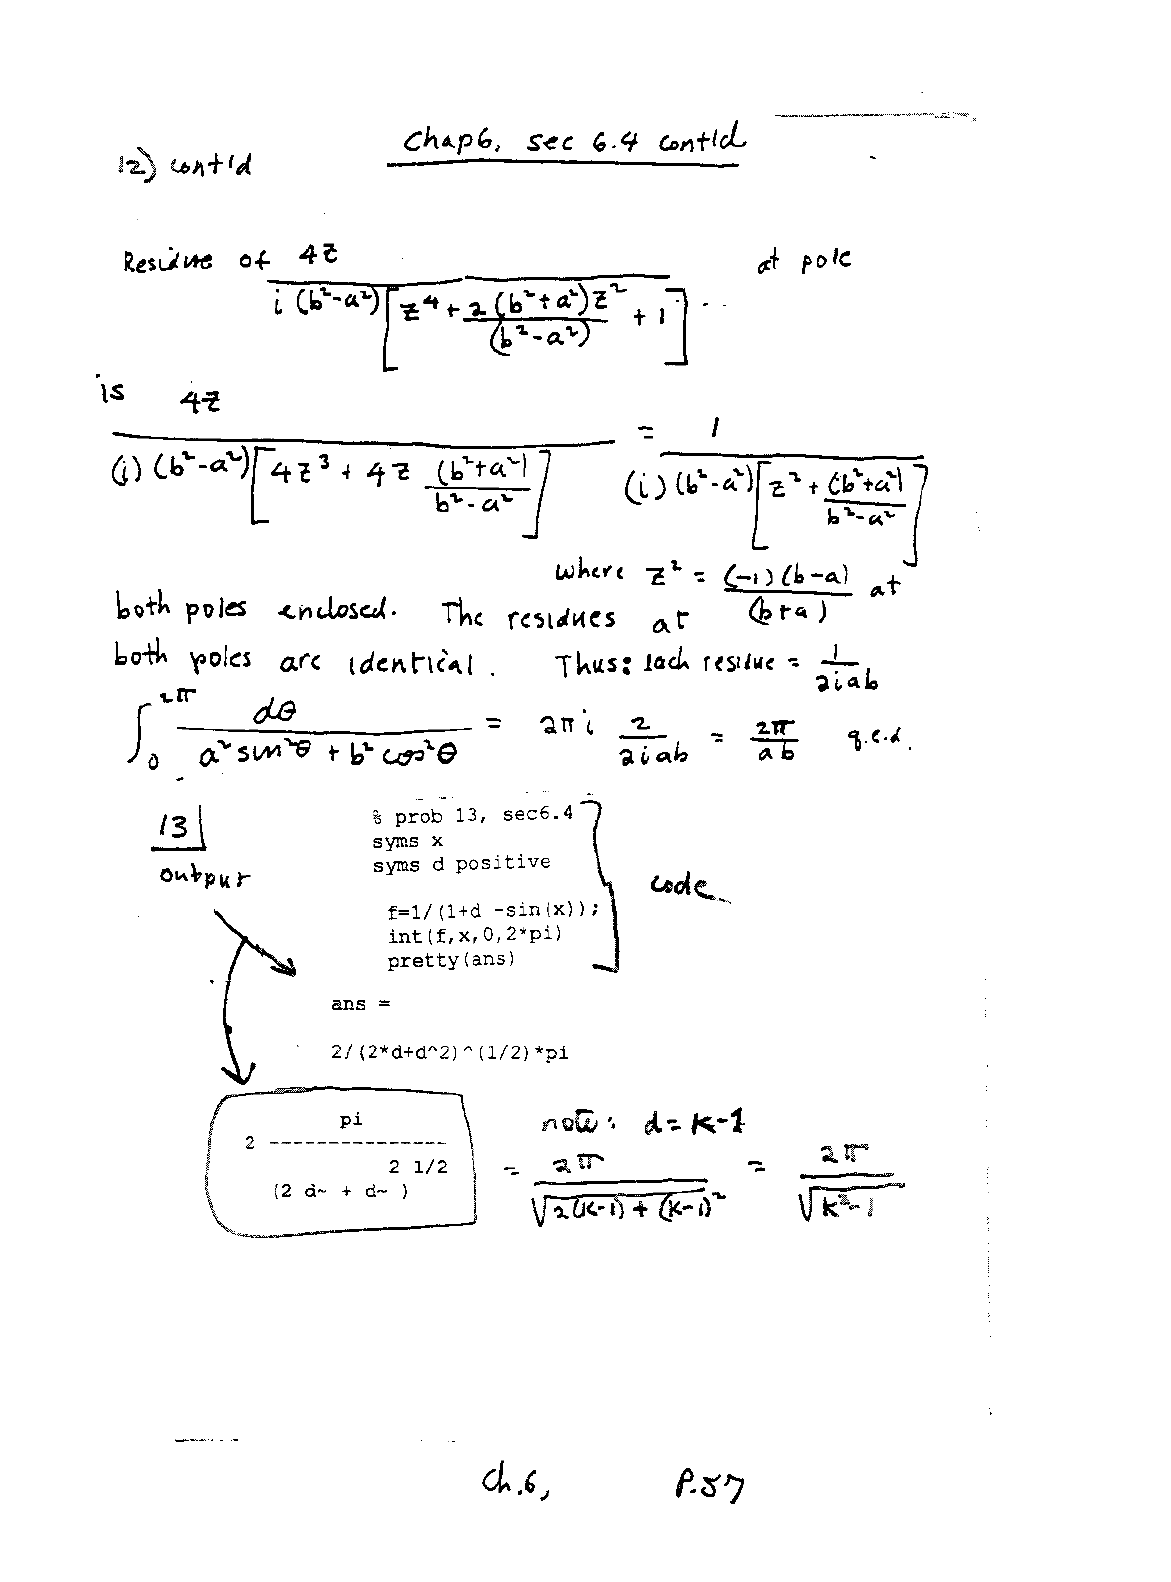 Chap 6, sec 6.4 cont'd
12) cont'd
Residue of 4z / i (b²-a²)[z⁴ + 2(b²+a²)z²/(b²-a²) + 1] at pole
is 4z / (i)(b²-a²)[4z³ + 4z (b²+a²)/b²-a²] = 1 / (i)(b²-a²)[z² + (b²+a²)/b²-a²]
where z² = (-1)(b-a)/(b+a) at
both poles enclosed. The residues at
both poles are identical. Thus: each residue = 1/2iab
∫₀^2π dθ / a² sin²θ + b² cos²θ = 2πi 2/2iab = 2π/ab q.e.d.
13
output
% prob 13, sec6.4
syms x
syms d positive
f=1/(1+d -sin(x));
int(f,x,0,2*pi)
pretty(ans)
code
ans =
2/(2*d+d^2)^(1/2)*pi
pi
2 ---------------
2 1/2
(2 d~ + d~ )
note: d = k-1
= 2π / √2(k-1) + (k-1)² = 2π / √k²-1
Ch.6, P.57